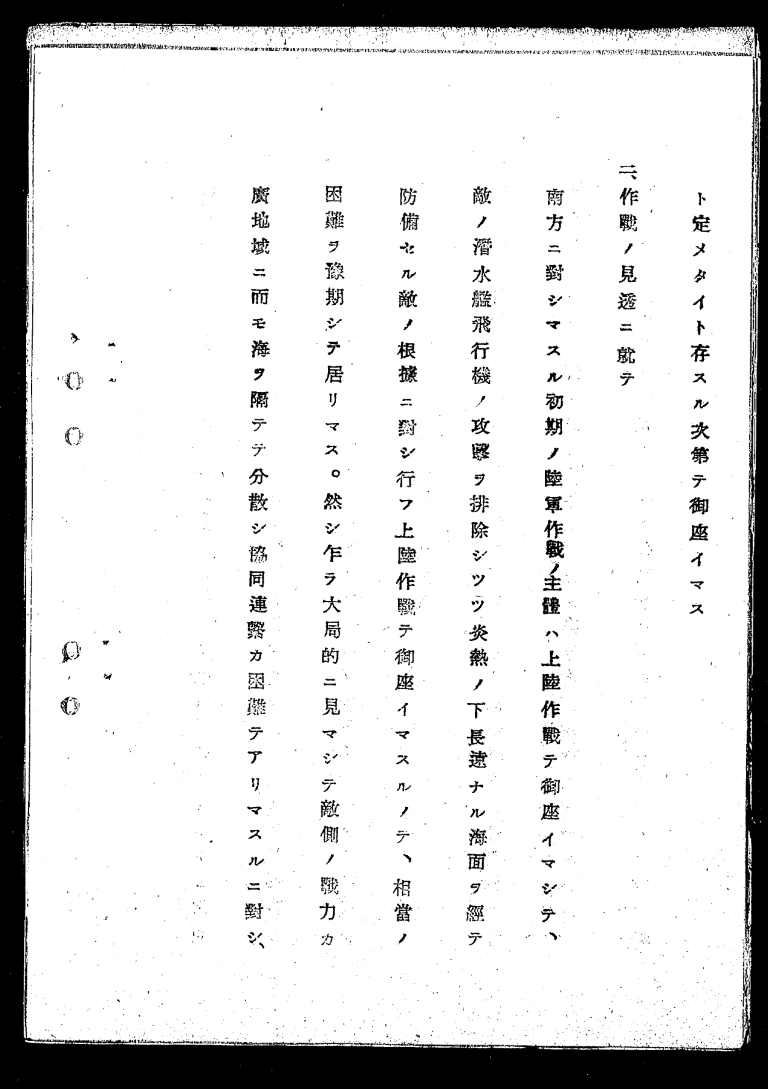 ト定メタイト存スル次第テ御座イマス
二、作戰ノ見透ニ就テ
南方ニ對シマスル初期ノ陸軍作戰ノ主體ハ上陸作戰テ御座イマシテ、
敵ノ潛水艦飛行機ノ攻擊ヲ排除シツツ炎熱ノ下長遠ナル海面ヲ經テ
防備セル敵ノ根據ニ對シ行フ上陸作戰テ御座イマスルノテ、相當ノ
困難ヲ豫期シテ居リマス。然シ乍ラ大局的ニ見マシテ敵側ノ戰力カ
廣地域ニ而モ海ヲ隔テテ分散シ協同連繫カ困難テアリマスルニ對シ、